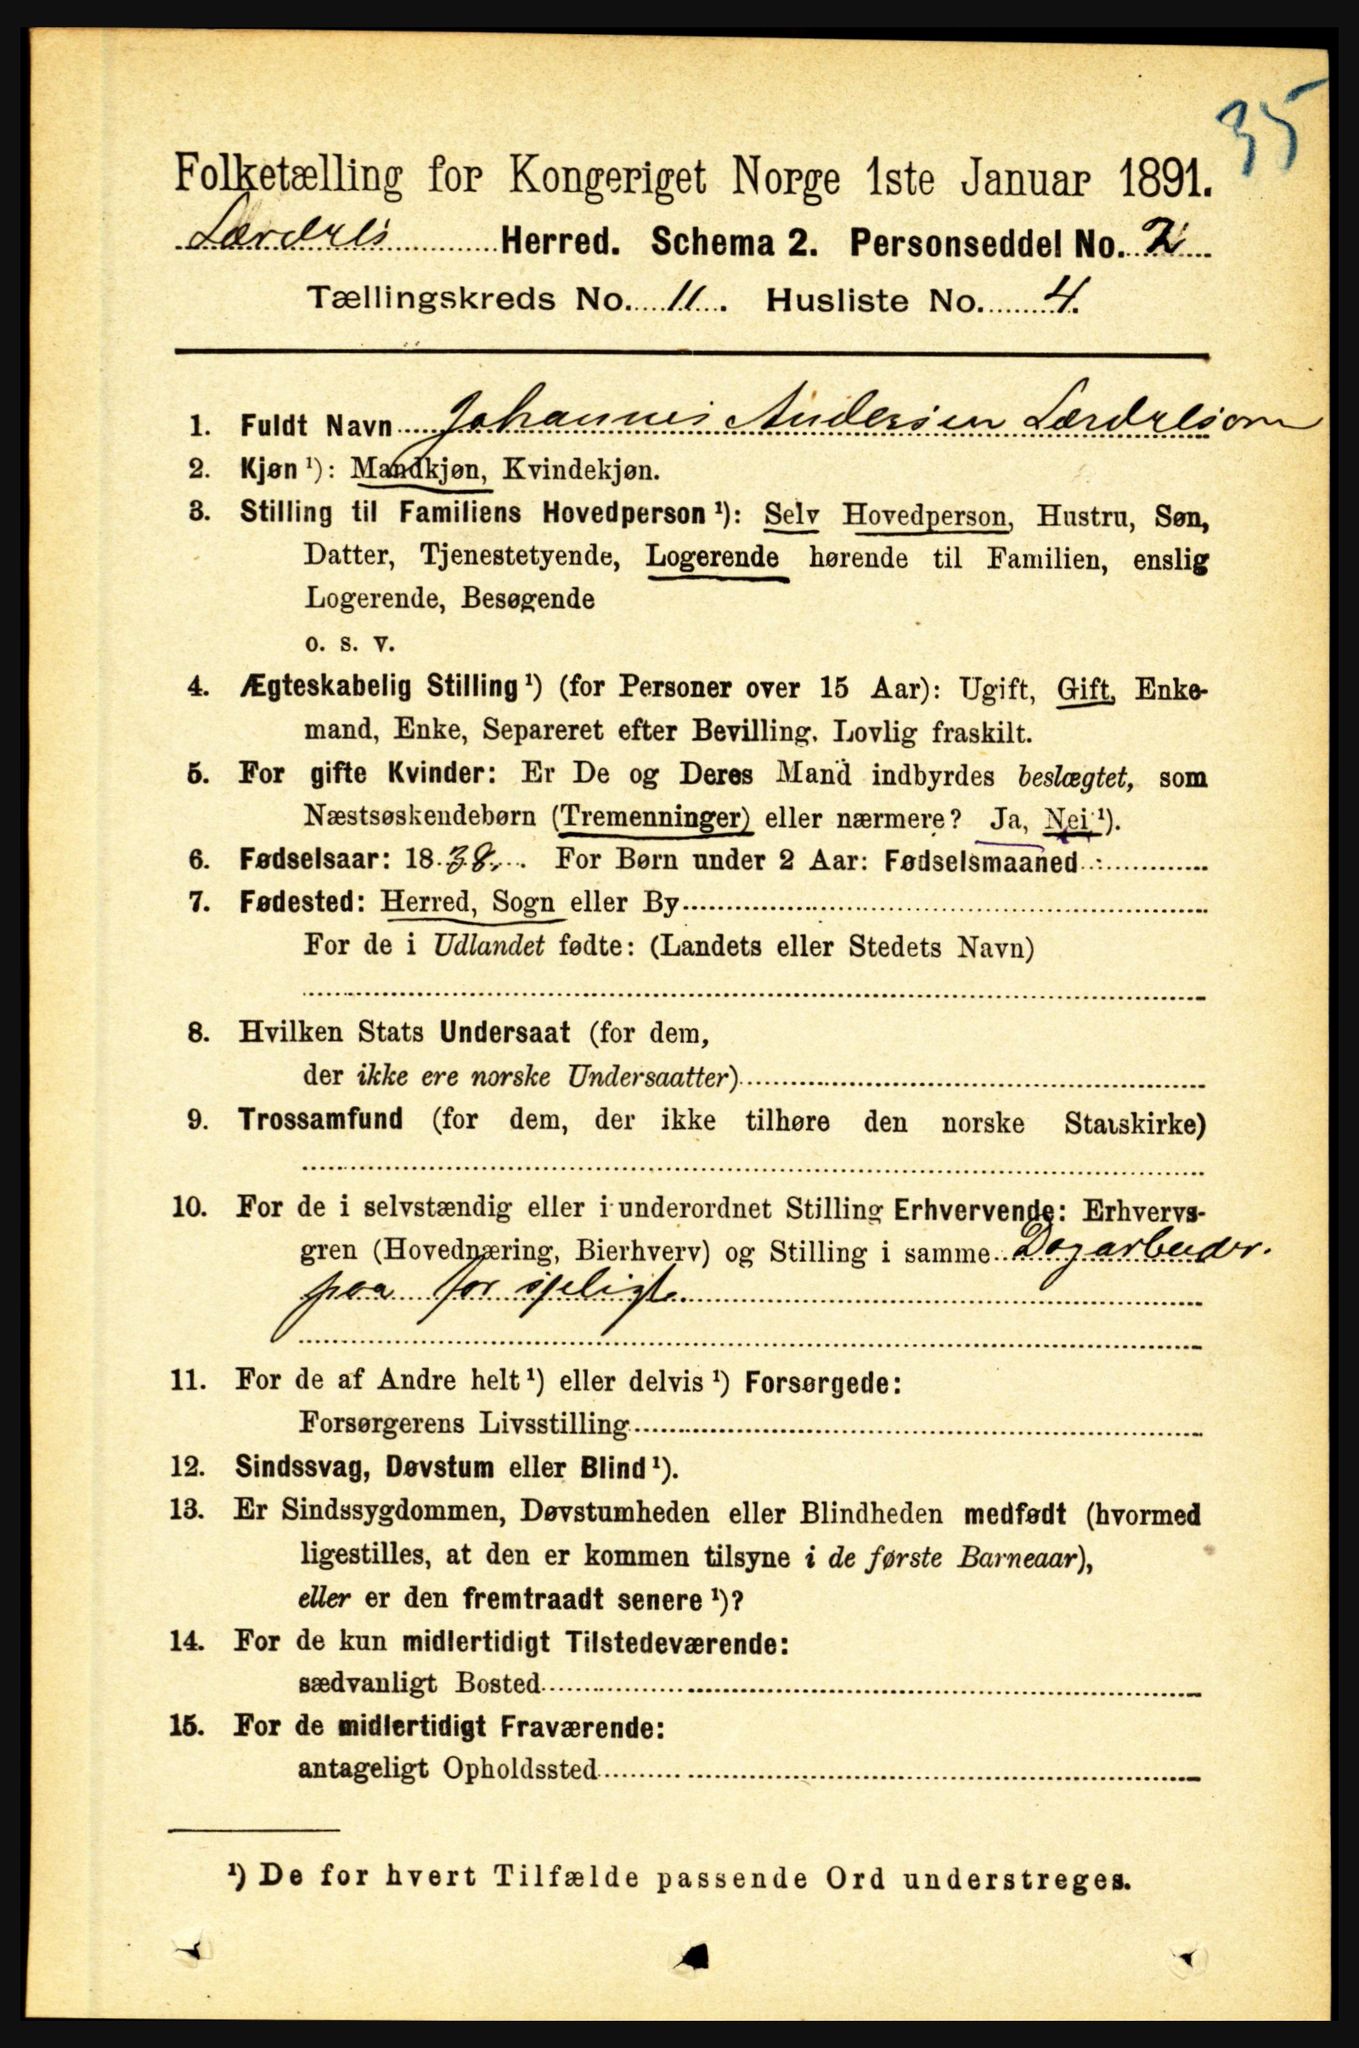 35
Folketælling for Kongeriget Norge 1ste Januar 1891.
Lærdals Herred. Schema 2. Personseddel No. 2
Tællingskreds No. 11. Husliste No. 4.
1. Fuldt Navn Johannes Andersen Lærdalsøren
2. Kjøn ¹): Mandkjøn, Kvindekjøn.
3. Stilling til Familiens Hovedperson ¹): Selv Hovedperson, Hustru, Søn,
Datter, Tjenestetyende, Logerende hørende til Familien, enslig
Logerende, Besøgende
o. s. v.
4. Ægteskabelig Stilling ¹) (for Personer over 15 Aar): Ugift, Gift, Enke-
mand, Enke, Separeret efter Bevilling. Lovlig fraskilt.
5. For gifte Kvinder: Er De og Deres Mand indbyrdes beslægtet, som
Næstsøskendebørn (Tremenninger) eller nærmere? Ja, Nei ¹).
6. Fødselsaar: 1838. For Børn under 2 Aar: Fødselsmaaned
7. Fødested: Herred, Sogn eller By
For de i Udlandet fødte: (Landets eller Stedets Navn)
8. Hvilken Stats Undersaat (for dem,
der ikke ere norske Undersaatter)
9. Trossamfund (for dem, der ikke tilhøre den norske Statskirke)
10. For de i selvstændig eller i underordnet Stilling Erhvervende: Erhvervs-
gren (Hovednæring, Bierhverv) og Stilling i samme Dagarbeider.
paa forsjeligt
11. For de af Andre helt ¹) eller delvis ¹) Forsørgede:
Forsørgerens Livsstilling
12. Sindssvag, Døvstum eller Blind ¹).
13. Er Sindssygdommen, Døvstumheden eller Blindheden medfødt (hvormed
ligestilles, at den er kommen tilsyne i de første Barneaar),
eller er den fremtraadt senere ¹)?
14. For de kun midlertidigt Tilstedeværende:
sædvanligt Bosted
15. For de midlertidigt Fraværende:
antageligt Opholdssted
¹) De for hvert Tilfælde passende Ord understreges.